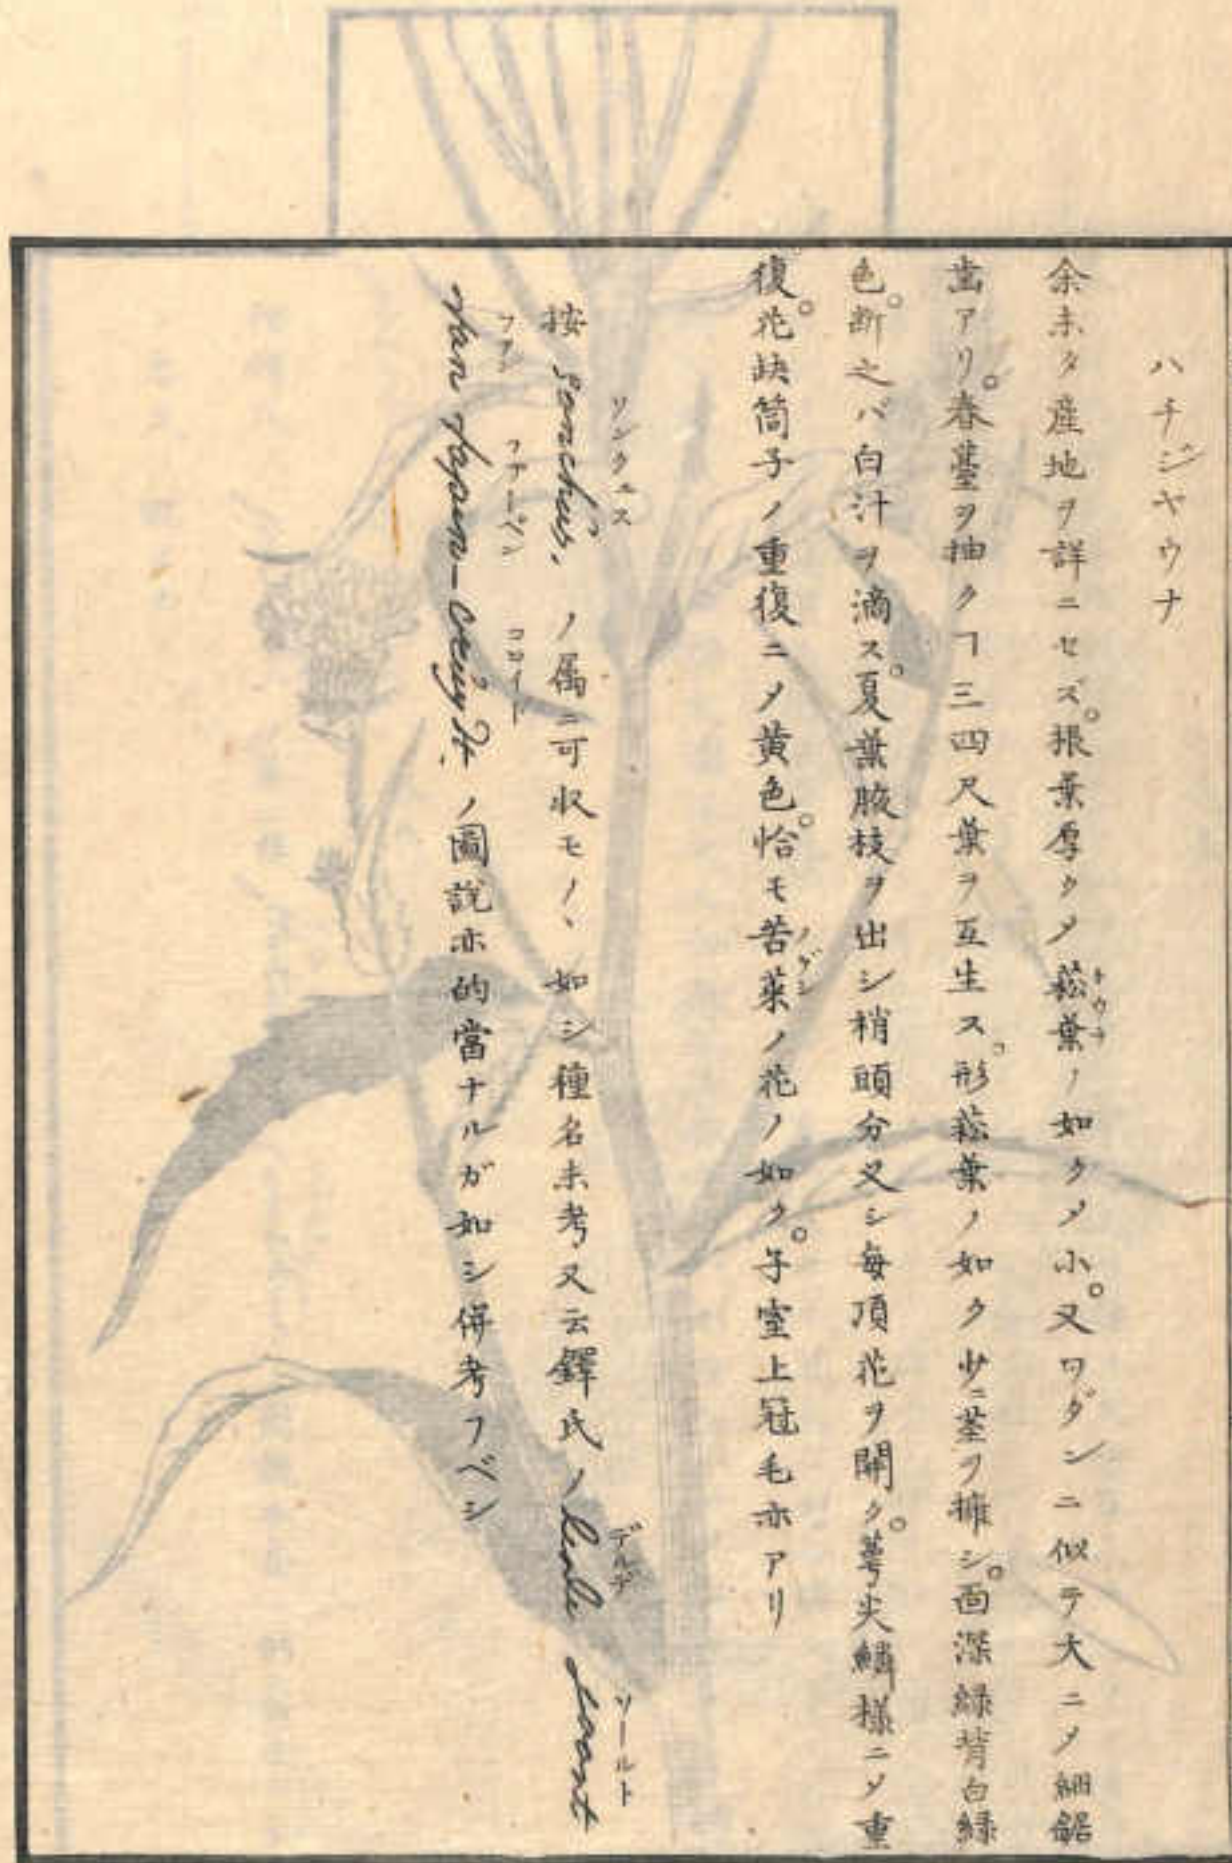 ハチジヤウナ
余未タ産地ヲ詳ニセズ。根葉厚クメ菘葉ノ如クメ小。又ワダンニ似テ大ニメ細鋸
歯アリ。春薹ヲ抽クヿ三四尺葉ヲ互生ス。形菘葉ノ如ク少ニ茎ヲ擁シ。面深緑背白緑
色。断之バ白汁ヲ滴ス。夏葉腋枝ヲ出シ梢頭分叉シ毎頂花ヲ開ク。萼尖鱗様ニメ重
復。花缺筒子ノ重復ニメ黄色。恰モ苦菜ノ花ノ如ク。子室上冠毛亦アリ
按 Sonchus, ノ属ニ可収モノヽ如シ種名未考、又云鐸氏ノ derde soort
van Japan-Cruydt, ノ圖説亦的當ナルガ如シ併考フベシ